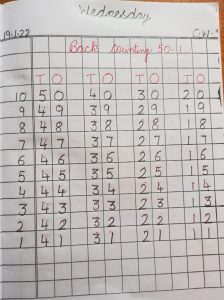 Wednesday
19-1-22 C.W.
Back counting 50-1
T O T O T O T O
10 5 0 4 0 3 0 2 0
9 4 9 3 9 2 9 1 9
8 4 8 3 8 2 8 1 8
7 4 7 3 7 2 7 1 7
6 4 6 3 6 2 6 1 6
5 4 5 3 5 2 5 1 5
4 4 4 3 4 2 4 1 4
3 4 3 3 3 2 3 1 3
2 4 2 3 2 2 2 1 2
1 4 1 3 1 2 1 1 1